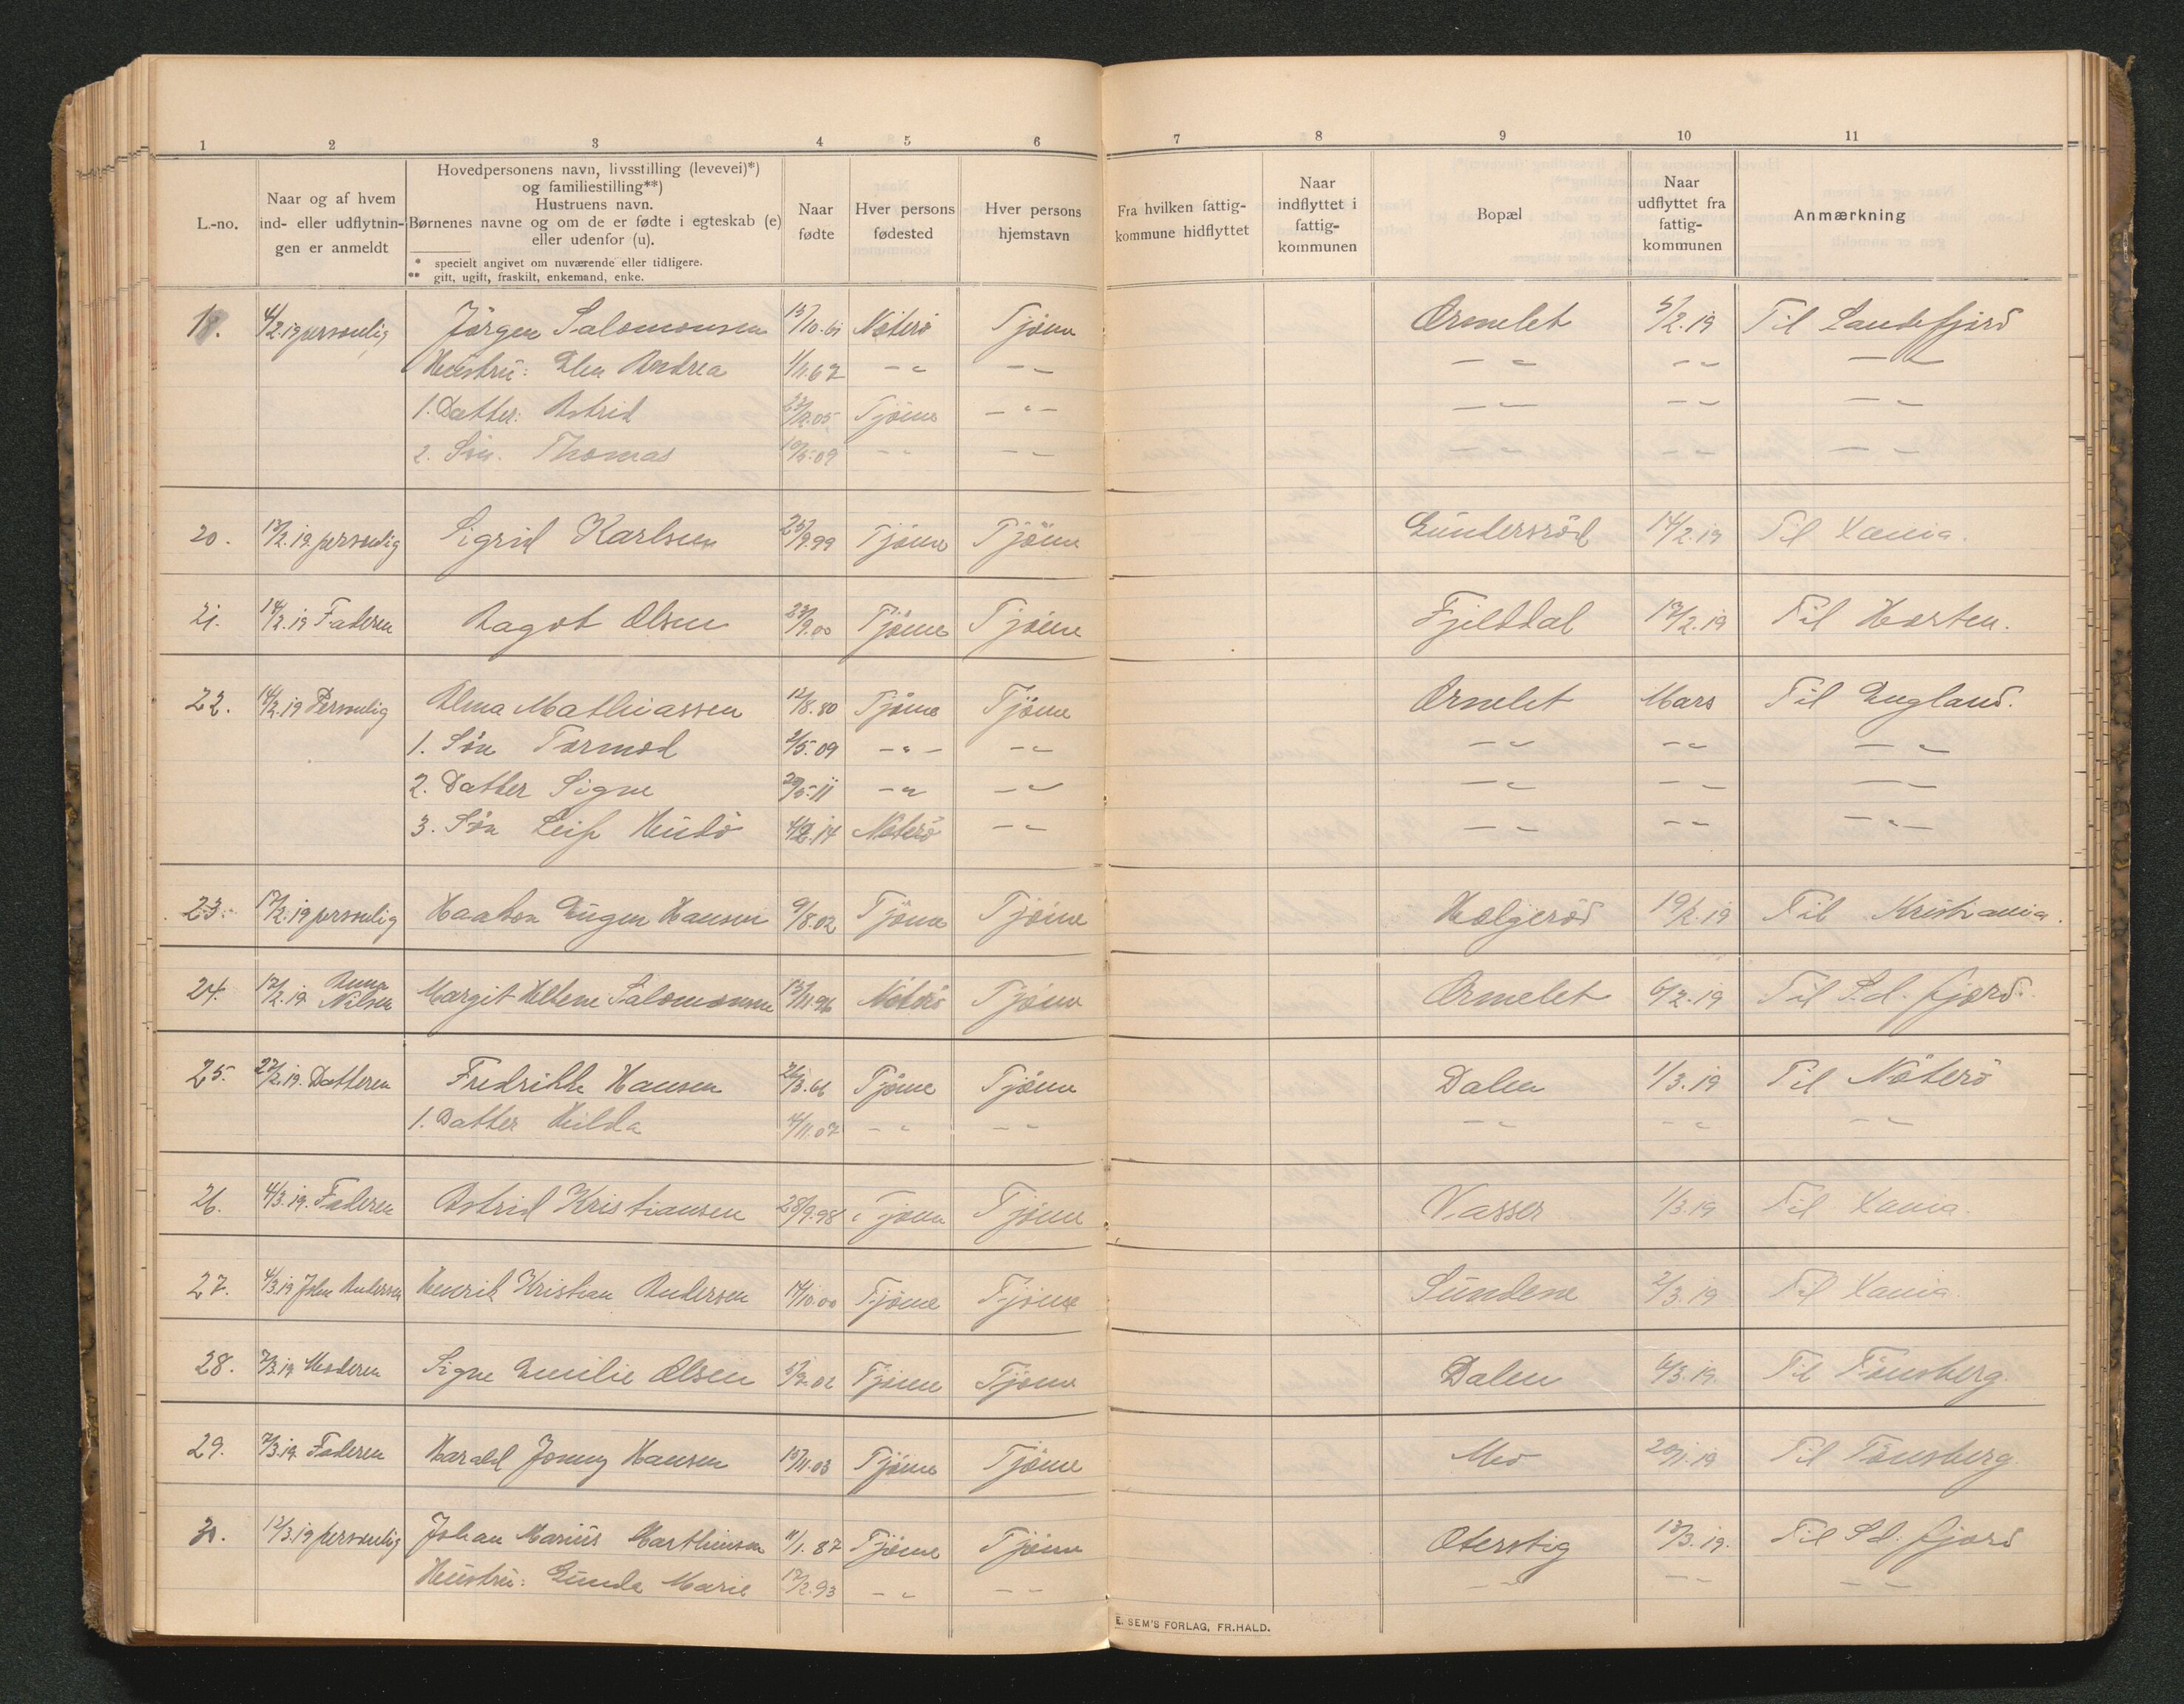 1 2 3 4 5 6 7 8 9 10 11
L.-no. | Naar og af hvem ind- eller udflytningen er anmeldt | Hovedpersonens navn, livsstilling (levevei)*) og familiestilling**) Hustruens navn. Børnenes navne og om de er fødte i egteskab (e) eller udenfor (u). * specielt angivet om nuværende eller tidligere. ** gift, ugift, fraskilt, enkemand, enke. | Naar fødte | Hver persons fødested | Hver persons hjemstavn | Fra hvilken fattigkommune hidflyttet | Naar indflyttet i fattigkommunen | Bopæl | Naar udflyttet fra fattigkommunen | Anmærkning
4/2.19 personlig Jörgen Salomonsen Nöterö Tjöme Ormelet 5/2.19 Til Sandefjord
Hustru: Elen Andrea 1/11.67 — " — " — " — " — "
1. Datter: Astrid Tjöme — " — — " — " — "
2. Sön. Thomas — " — " — " — " — "
20. 13/2.19 personlig Sigrid Karlsen 25/9.99 Tjöme Tjöme Gundersröd 14/2.19 Til Xania.
21. 14/2.19 Faderen Ragot Olsen Tjöme Tjöme Fjelddal Til Horten.
22. 14/2.19 Personlig Alma Mathiassen 12/8.80 Tjöme Tjöme Ormelet Mars Til England.
1. Sön Tormod 2/5.09 — " — — " — " — " — "
2. Datter Signe — " — " — " — " — "
3. Sön Leif Hudö Nöterö — " — " — " — " —
23. 17/2.19 personlig Haakon Eugen Hansen 9/8.02 Tjöme Tjöme Holgeröd 19/2.19 Til Kristiania.
24. 17/2.19 Anna Nilsen Margit Helene Salomonsen Nöterö Tjöme Ormelet 6/2.19 Til S.d.fjord.
25. 27/2.19. Datteren Fredrikke Hansen 26/3.66 Tjöme Tjöme Dalen 1/3.19 Til Nöterö
1. Datter Hilda — " — " — " — " — "
26. 4/3.19. Faderen Astrid Kristiansen 28/9.98 Tjöme Tjöme Vasser 1/3.19 Til Xania.
27. 4/3.19 John Andersen Henrik Kristian Andersen 14/10.00 Tjöme Tjöme Sundene 2/3.19 Til Xania.
28. 7/3.19 Moderen Signe Emilie Olsen Tjöme Tjöme Dalen 6/3.19. Til Tönsberg.
29. 7/3.19 Faderen Harald Jonny Hansen Tjöme Tjöme Mo 20/1.19 Til Tönsberg.
30. 12/3.19 personlig Johan Marius Marthinsen 11/1.87 Tjöme Tjöme Oterstig 13/3.19. Til Sd.fjord
Hustru: Gunda Marie 12/2.93 — " — — — — — — — —
E. SEM'S FORLAG, FR.HALD.